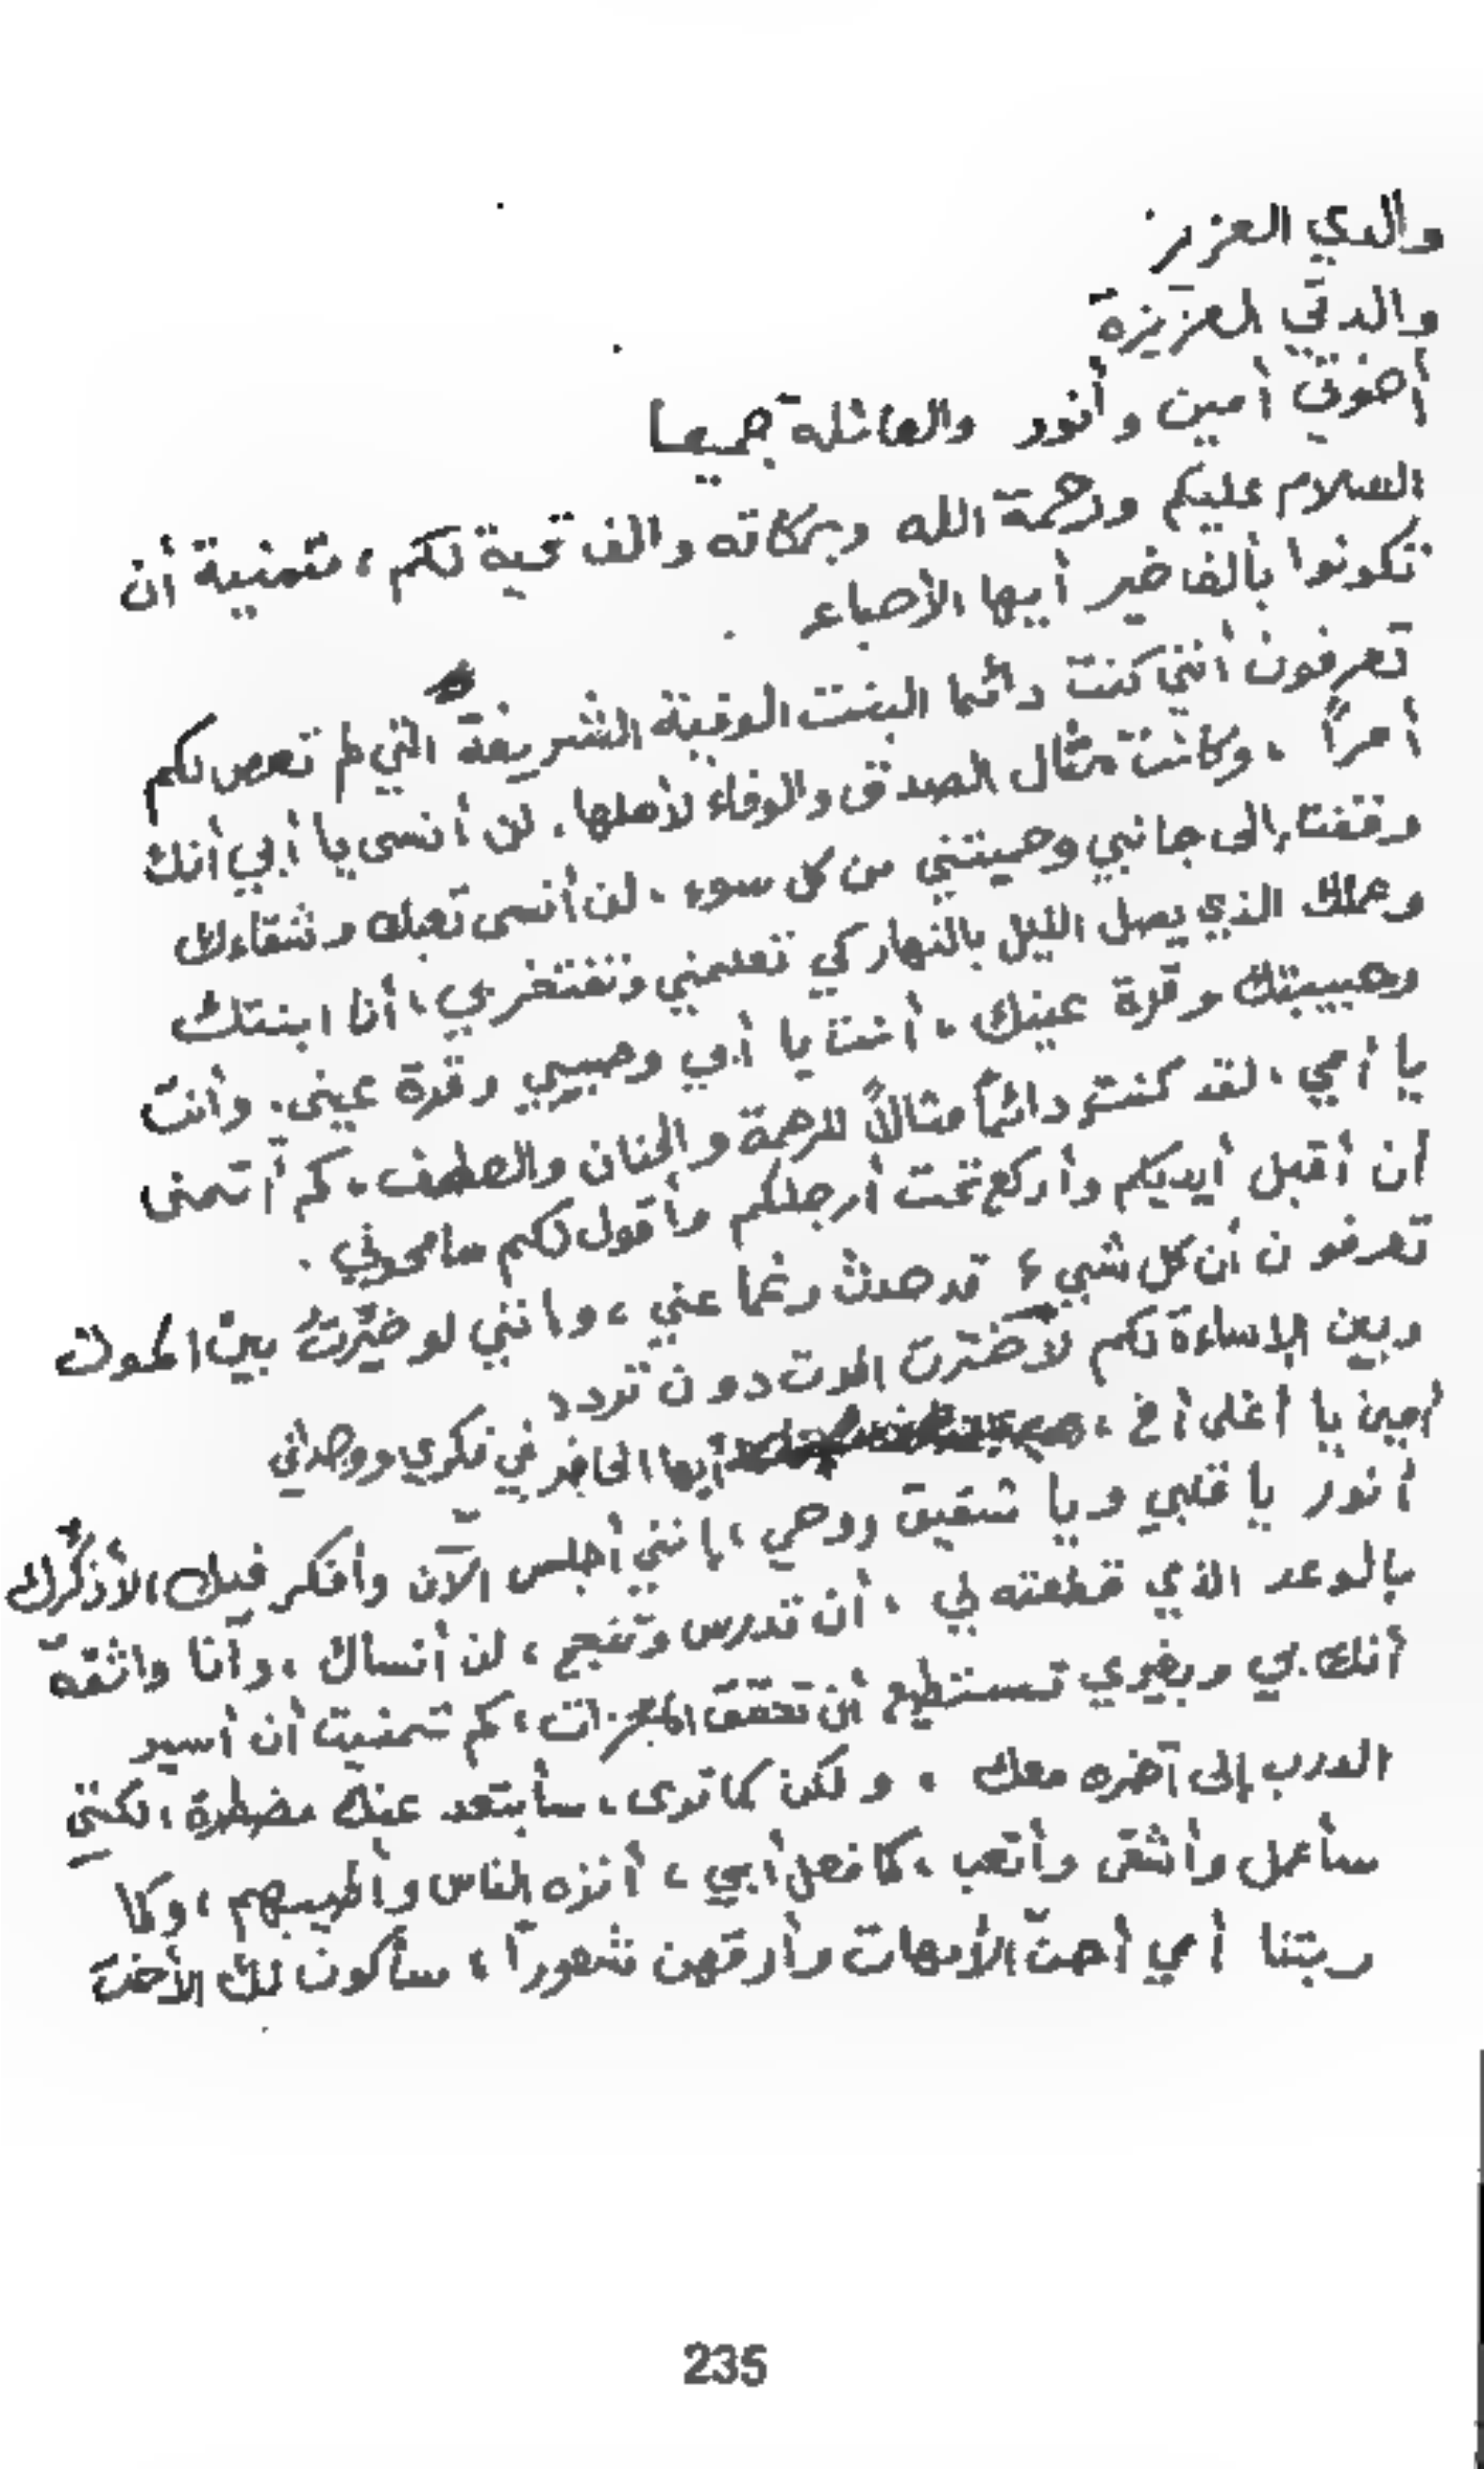 والدي العزيز
والدتي العزيزة
أخوتي أمين وأنور والعائلة جميعا
السلام عليكم ورحمة الله وبركاته والف تحية لكم، متمنية أن
تكونوا بألف خير أيها الأحباء.
تعرفون أنني كنت دائما البنت الوفية الشريفة التي لم تعص لكم
أمراً، وكانت مثال الصدق والوفاء لأهلها. لن أنسى يا أبي أنك
وقفت إلى جانبي وحميتني من كل سوء، لن أنسى تعبك وشقاءك
وعملك الذي يصل الليل بالنهار كي تعلمني وتفتخر بي، أنا ابنتك
وحبيبتك وقرة عينك، أنت يا أبي وحبيبي وقرة عيني. وأنت
يا أمي، لقد كنت دائماً مثالاً للرحمة والحنان والعطف، كم أتمنى
أن أقبل أيديكم وأركع تحت أرجلكم وأقول لكم سامحوني.
تعرفون أن كل شيء قد حدث رغما عني، وانني لو خيّرت بين الموت
وبين الإساءة لكم لأخترت الموت دون تردد
أمين يا أغلى أخ، أيها الحاضر في فكري ووجداني
أنور يا قلبي ويا شقيق روحي، إنني أجلس الآن وأفكر فيك، لأذكّرك
بالوعد الذي قطعته لي، أن تدرس وتنجح، لن أنساك، وأنا واثقة
أنك بي وبغيري تستطيع أن تحقق المعجزات، كم تمنيت أن أسير
الدرب إلى آخره معك، ولكن كما ترى، سأبتعد عنك مضطرة، لكنني
سأعمل وأشقى وأتعب، كما فعل أبي، أنزه الناس وأطيبهم، وكما
ربتنا أمي أحنّ الأمهات وأرقهن شعوراً، سأكون لك الأخت
235